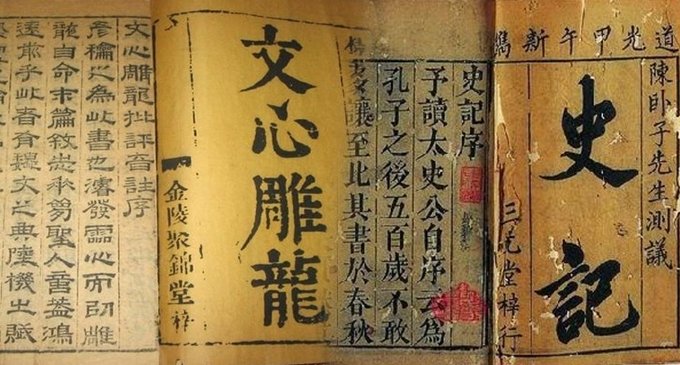 道光甲午新鐫
陳卧子先生測議
史記
三元堂梓行
史記序
予讀太史公自序云爲
孔子之後五百歲不敢
讓至此其書於春秋
文心雕龍
金陵聚錦堂梓
文心雕龍批評音註序
彥龢之為此書也濬發靈心而㠯雕
龍自命末篇敘志夢聖人意益鴻
遠乎此者有魏文之典陸機之賦